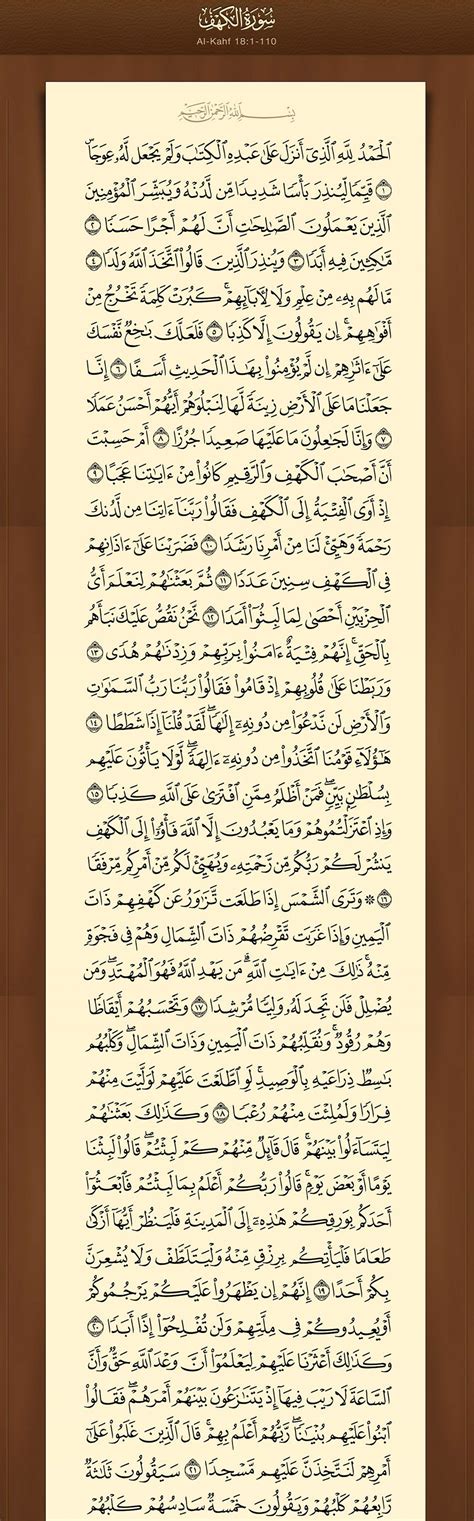 سُورَةُ الكَهْفِ
Al-Kahf 18:1-110
بِسْمِ اللَّهِ الرَّحْمَٰنِ الرَّحِيمِ
ٱلْحَمْدُ لِلَّهِ ٱلَّذِىٓ أَنزَلَ عَلَىٰ عَبْدِهِ ٱلْكِتَٰبَ وَلَمْ يَجْعَل لَّهُۥ عِوَجَاۜ
۝١ قَيِّمًا لِّيُنذِرَ بَأْسًا شَدِيدًا مِّن لَّدُنْهُ وَيُبَشِّرَ ٱلْمُؤْمِنِينَ
ٱلَّذِينَ يَعْمَلُونَ ٱلصَّٰلِحَٰتِ أَنَّ لَهُمْ أَجْرًا حَسَنًا ۝٢
مَّٰكِثِينَ فِيهِ أَبَدًا ۝٣ وَيُنذِرَ ٱلَّذِينَ قَالُوا۟ ٱتَّخَذَ ٱللَّهُ وَلَدًا ۝٤
مَّا لَهُم بِهِۦ مِنْ عِلْمٍ وَلَا لِءَابَآئِهِمْ ۚ كَبُرَتْ كَلِمَةً تَخْرُجُ مِنْ
أَفْوَٰهِهِمْ ۚ إِن يَقُولُونَ إِلَّا كَذِبًا ۝٥ فَلَعَلَّكَ بَٰخِعٌ نَّفْسَكَ
عَلَىٰٓ ءَاثَٰرِهِمْ إِن لَّمْ يُؤْمِنُوا۟ بِهَٰذَا ٱلْحَدِيثِ أَسَفًا ۝٦ إِنَّا
جَعَلْنَا مَا عَلَى ٱلْأَرْضِ زِينَةً لَّهَا لِنَبْلُوَهُمْ أَيُّهُمْ أَحْسَنُ عَمَلًا
۝٧ وَإِنَّا لَجَٰعِلُونَ مَا عَلَيْهَا صَعِيدًا جُرُزًا ۝٨ أَمْ حَسِبْتَ
أَنَّ أَصْحَٰبَ ٱلْكَهْفِ وَٱلرَّقِيمِ كَانُوا۟ مِنْ ءَايَٰتِنَا عَجَبًا ۝٩
إِذْ أَوَى ٱلْفِتْيَةُ إِلَى ٱلْكَهْفِ فَقَالُوا۟ رَبَّنَآ ءَاتِنَا مِن لَّدُنكَ
رَحْمَةً وَهَيِّئْ لَنَا مِنْ أَمْرِنَا رَشَدًا ۝١٠ فَضَرَبْنَا عَلَىٰٓ ءَاذَانِهِمْ
فِى ٱلْكَهْفِ سِنِينَ عَدَدًا ۝١١ ثُمَّ بَعَثْنَٰهُمْ لِنَعْلَمَ أَىُّ
ٱلْحِزْبَيْنِ أَحْصَىٰ لِمَا لَبِثُوٓا۟ أَمَدًا ۝١٢ نَّحْنُ نَقُصُّ عَلَيْكَ نَبَأَهُم
بِٱلْحَقِّ ۚ إِنَّهُمْ فِتْيَةٌ ءَامَنُوا۟ بِرَبِّهِمْ وَزِدْنَٰهُمْ هُدًى ۝١٣
وَرَبَطْنَا عَلَىٰ قُلُوبِهِمْ إِذْ قَامُوا۟ فَقَالُوا۟ رَبُّنَا رَبُّ ٱلسَّمَٰوَٰتِ
وَٱلْأَرْضِ لَن نَّدْعُوَا۟ مِن دُونِهِۦٓ إِلَٰهًا ۖ لَّقَدْ قُلْنَآ إِذًا شَطَطًا ۝١٤
هَٰٓؤُلَآءِ قَوْمُنَا ٱتَّخَذُوا۟ مِن دُونِهِۦٓ ءَالِهَةً ۖ لَّوْلَا يَأْتُونَ عَلَيْهِم
بِسُلْطَٰنٍۭ بَيِّنٍ ۖ فَمَنْ أَظْلَمُ مِمَّنِ ٱفْتَرَىٰ عَلَى ٱللَّهِ كَذِبًا ۝١٥
وَإِذِ ٱعْتَزَلْتُمُوهُمْ وَمَا يَعْبُدُونَ إِلَّا ٱللَّهَ فَأْوُۥٓا۟ إِلَى ٱلْكَهْفِ
يَنشُرْ لَكُمْ رَبُّكُم مِّن رَّحْمَتِهِۦ وَيُهَيِّئْ لَكُم مِّنْ أَمْرِكُم مِّرْفَقًا
۝١٦ ۞ وَتَرَى ٱلشَّمْسَ إِذَا طَلَعَت تَّزَٰوَرُ عَن كَهْفِهِمْ ذَاتَ
ٱلْيَمِينِ وَإِذَا غَرَبَت تَّقْرِضُهُمْ ذَاتَ ٱلشِّمَالِ وَهُمْ فِى فَجْوَةٍ
مِّنْهُ ۚ ذَٰلِكَ مِنْ ءَايَٰتِ ٱللَّهِ ۗ مَن يَهْدِ ٱللَّهُ فَهُوَ ٱلْمُهْتَدِ ۖ وَمَن
يُضْلِلْ فَلَن تَجِدَ لَهُۥ وَلِيًّا مُّرْشِدًا ۝١٧ وَتَحْسَبُهُمْ أَيْقَاظًا
وَهُمْ رُقُودٌ ۚ وَنُقَلِّبُهُمْ ذَاتَ ٱلْيَمِينِ وَذَاتَ ٱلشِّمَالِ ۖ وَكَلْبُهُم
بَٰسِطٌ ذِرَاعَيْهِ بِٱلْوَصِيدِ ۚ لَوِ ٱطَّلَعْتَ عَلَيْهِمْ لَوَلَّيْتَ مِنْهُمْ
فِرَارًا وَلَمُلِئْتَ مِنْهُمْ رُعْبًا ۝١٨ وَكَذَٰلِكَ بَعَثْنَٰهُمْ
لِيَتَسَآءَلُوا۟ بَيْنَهُمْ ۚ قَالَ قَآئِلٌ مِّنْهُمْ كَمْ لَبِثْتُمْ ۖ قَالُوا۟ لَبِثْنَا
يَوْمًا أَوْ بَعْضَ يَوْمٍ ۚ قَالُوا۟ رَبُّكُمْ أَعْلَمُ بِمَا لَبِثْتُمْ فَٱبْعَثُوٓا۟
أَحَدَكُم بِوَرِقِكُمْ هَٰذِهِۦٓ إِلَى ٱلْمَدِينَةِ فَلْيَنظُرْ أَيُّهَآ أَزْكَىٰ
طَعَامًا فَلْيَأْتِكُم بِرِزْقٍ مِّنْهُ وَلْيَتَلَطَّفْ وَلَا يُشْعِرَنَّ
بِكُمْ أَحَدًا ۝١٩ إِنَّهُمْ إِن يَظْهَرُوا۟ عَلَيْكُمْ يَرْجُمُوكُمْ
أَوْ يُعِيدُوكُمْ فِى مِلَّتِهِمْ وَلَن تُفْلِحُوٓا۟ إِذًا أَبَدًا ۝٢٠
وَكَذَٰلِكَ أَعْثَرْنَا عَلَيْهِمْ لِيَعْلَمُوٓا۟ أَنَّ وَعْدَ ٱللَّهِ حَقٌّ وَأَنَّ
ٱلسَّاعَةَ لَا رَيْبَ فِيهَآ إِذْ يَتَنَٰزَعُونَ بَيْنَهُمْ أَمْرَهُمْ ۖ فَقَالُوا۟
ٱبْنُوا۟ عَلَيْهِم بُنْيَٰنًا ۖ رَّبُّهُمْ أَعْلَمُ بِهِمْ ۚ قَالَ ٱلَّذِينَ غَلَبُوا۟ عَلَىٰٓ
أَمْرِهِمْ لَنَتَّخِذَنَّ عَلَيْهِم مَّسْجِدًا ۝٢١ سَيَقُولُونَ ثَلَٰثَةٌ
رَّابِعُهُمْ كَلْبُهُمْ وَيَقُولُونَ خَمْسَةٌ سَادِسُهُمْ كَلْبُهُمْ